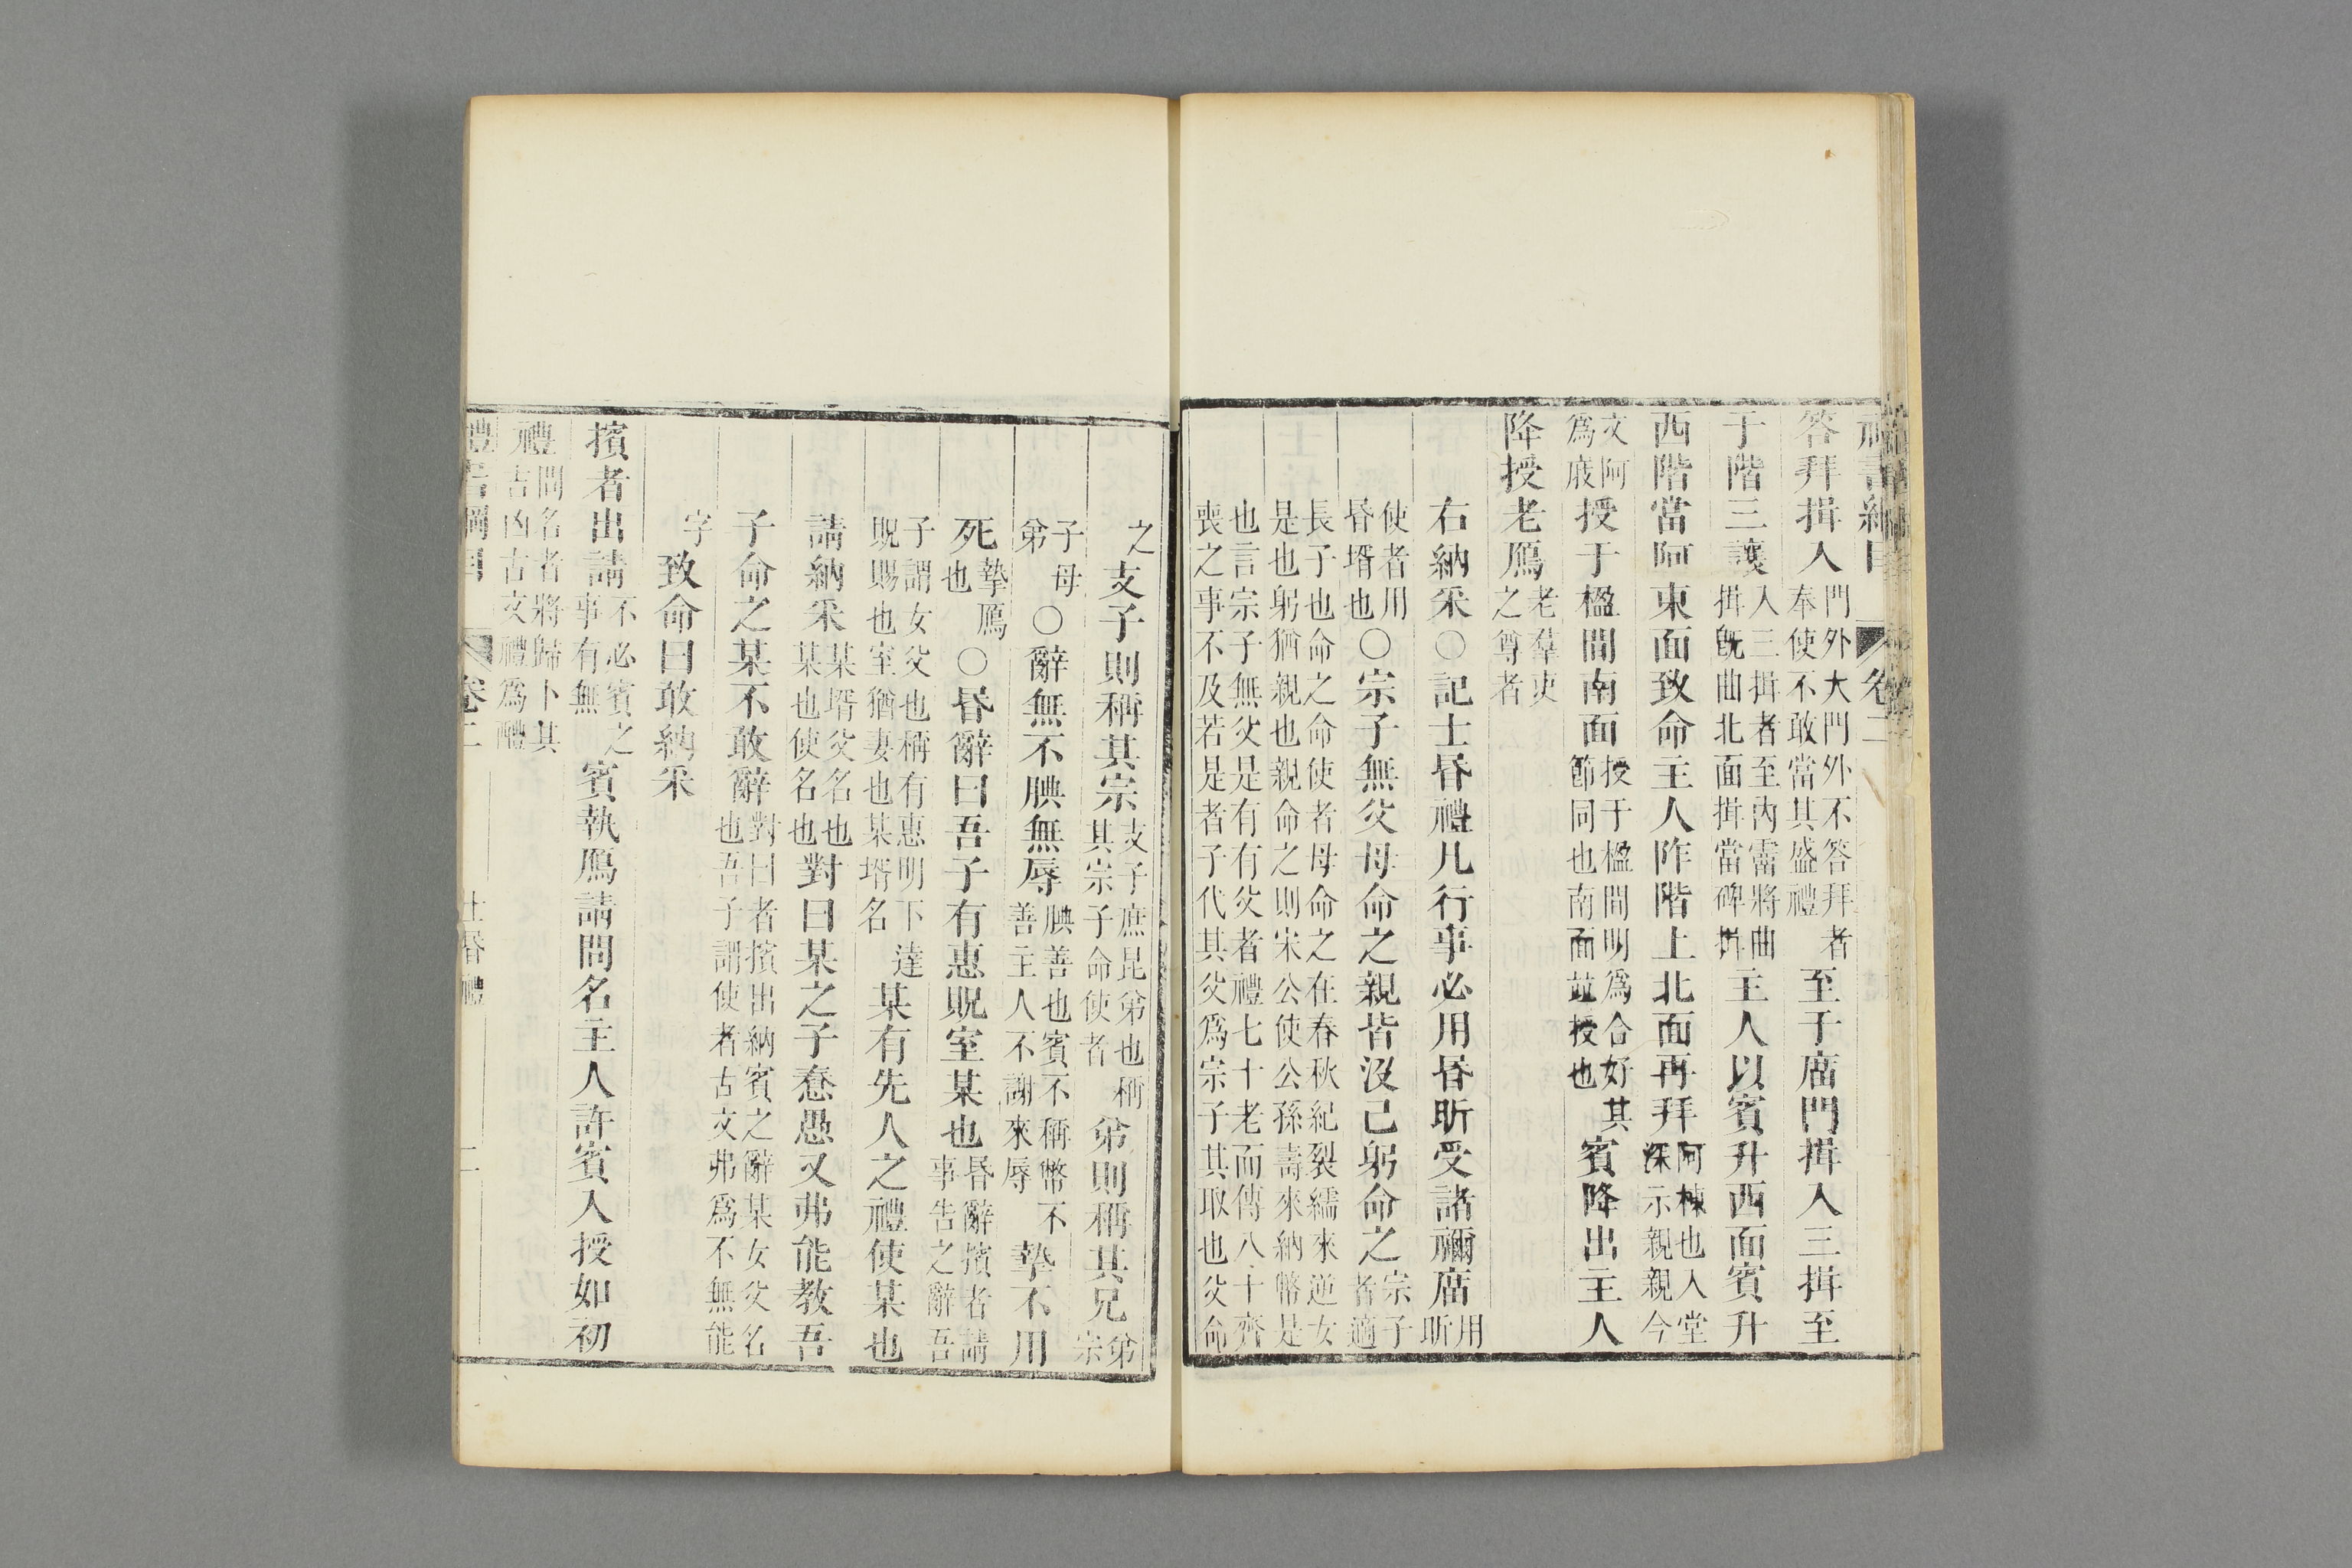 禮書綱目 卷二
答拜揖入門外大門外不答拜者奉使不敢當其盛禮至于廟門揖入三揖至
于階三讓入三揖者至內霤將曲揖旣曲北面揖當碑揖主人以賓升西面賓升
西階當阿東面致命主人阼階上北面再拜阿棟也入堂深示親親今
文阿爲庪授于楹間南面授于楹間明爲合好其節同也南面竝授也賓降出主人
降授老鴈老羣吏之尊者
右納采○記士昏禮凡行事必用昏昕受諸禰廟用昕
使者用昏壻也○宗子無父母命之親皆沒己躬命之宗子者適
長子也命之命使者母命之在春秋紀裂繻來逆女是也躬猶親也親命之則宋公使公孫壽來納幣是
也言宗子無父是有有父者禮七十老而傳八十齊喪之事不及若是者子代其父爲宗子其取也父命
之支子則稱其宗支子庶昆弟也稱其宗子命使者弟則稱其兄弟宗
子母弟○辭無不腆無辱腆善也賓不稱幣不善主人不謝來辱摯不用
死摯鴈也○昏辭曰吾子有惠貺室某也昏辭擯者請事告之辭吾
子謂女父也稱有惠明下達貺賜也室猶妻也某壻名某有先人之禮使某也
請納采某壻父名也某也使名也對曰某之子惷愚又弗能教吾
子命之某不敢辭對曰者擯出納賓之辭某女父名也吾子謂使者古文弗爲不無能
字致命曰敢納采
擯者出請不必賓之事有無賓執鴈請問名主人許賓入授如初
禮問名者將歸卜其吉凶古文禮爲醴
禮書綱目 卷二 士昏禮 二